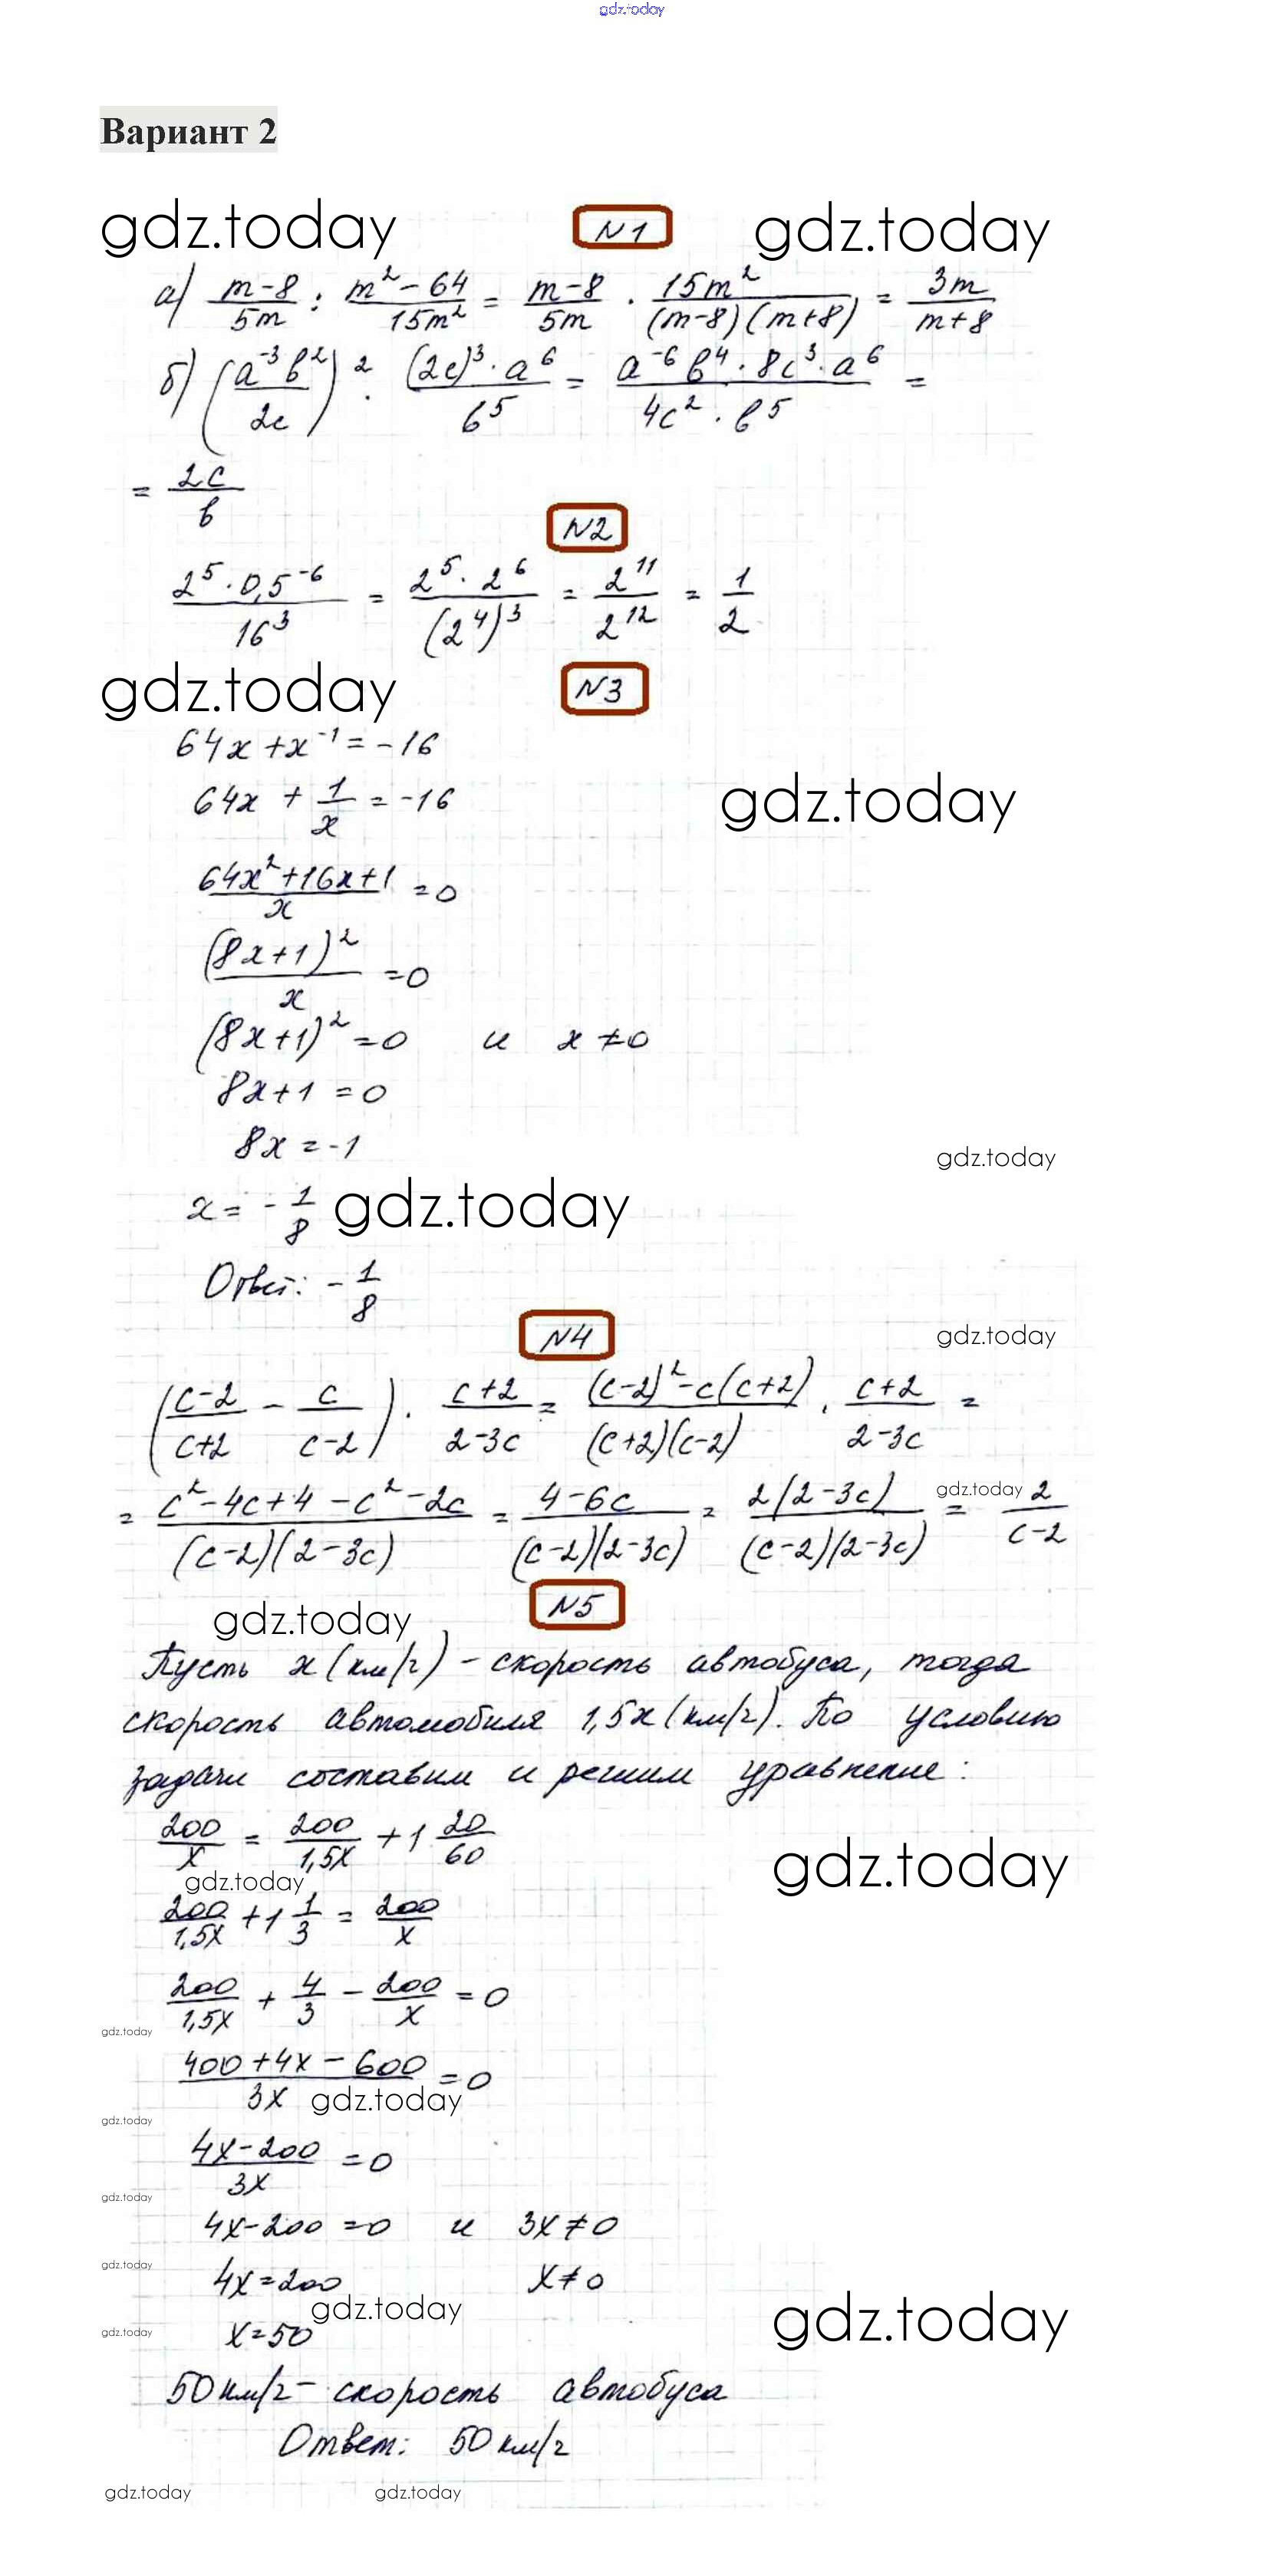 gdz.today
Вариант 2
gdz.today N1 gdz.today
а) (m-8)/(5m) : (m²-64)/(15m²) = (m-8)/(5m) · (15m²)/((m-8)(m+8)) = (3m)/(m+8)
б) ((a⁻³b²)/(2c))² · ((2c)³·a⁶)/(b⁵) = (a⁻⁶b⁴·8c³·a⁶)/(4c²·b⁵) =
= (2c)/b
N2
(2⁵·0,5⁻⁶)/(16³) = (2⁵·2⁶)/((2⁴)³) = 2¹¹/2¹² = 1/2
gdz.today N3
64x+x⁻¹=-16
gdz.today
64x + 1/x = -16
(64x²+16x+1)/x = 0
(8x+1)²/x = 0
(8x+1)²=0 и x≠0
8x+1=0
8x=-1
gdz.today
x= -1/8 gdz.today
Ответ: -1/8
N4
gdz.today
((c-2)/(c+2) - c/(c-2)) · (c+2)/(2-3c) = ((c-2)²-c(c+2))/((c+2)(c-2)) · (c+2)/(2-3c) =
= (c²-4c+4-c²-2c)/((c-2)(2-3c)) = (4-6c)/((c-2)(2-3c)) = (2(2-3c))/((c-2)(2-3c)) = 2/(c-2)
gdz.today
N5
gdz.today
Пусть x(км/ч) - скорость автобуса, тогда
скорость автомобиля 1,5x(км/ч). По условию
задачи составим и решим уравнение:
200/x = 200/(1,5x) + 1 20/60
gdz.today
gdz.today
200/(1,5x) + 1 1/3 = 200/x
200/(1,5x) + 4/3 - 200/x = 0
gdz.today
(400+4x-600)/(3x) = 0
gdz.today
gdz.today
(4x-200)/(3x) = 0
gdz.today
4x-200=0 и 3x≠0
gdz.today
4x=200 x≠0
gdz.today
gdz.today
gdz.today
x=50
50км/ч- скорость автобуса
Ответ: 50км/ч
gdz.today gdz.today